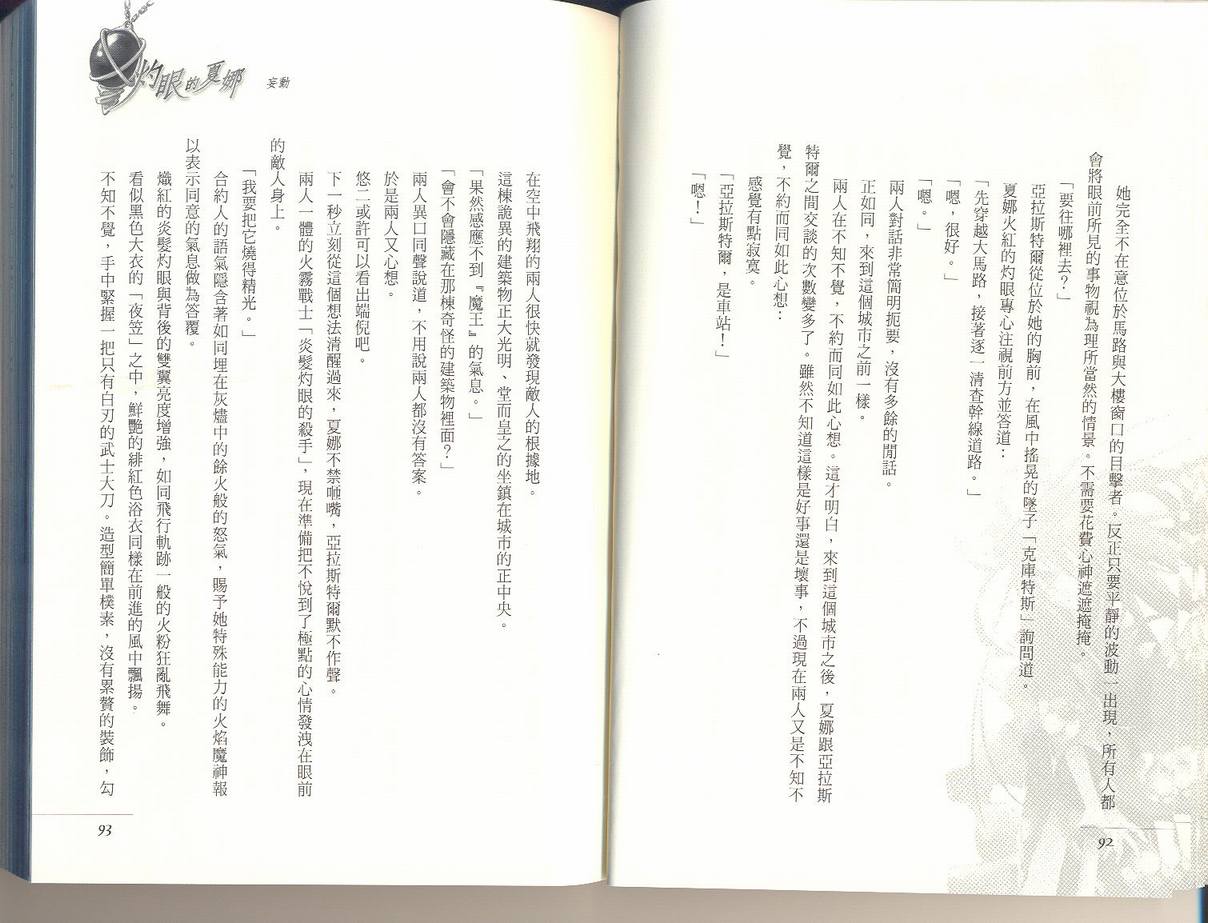 她完全不在意位於馬路與大樓窗口的目擊者。反正只要平靜的波動一出現，所有人都
會將眼前所見的事物視為理所當然的情景。不需要花費心神遮遮掩掩。
「要往哪裡去？」
亞拉斯特爾從位於她的胸前，在風中搖晃的墜子「克庫特斯」詢問道。
夏娜火紅的灼眼專心注視前方並答道：
「先穿越大馬路，接著逐一清查幹線道路。」
「嗯，很好。」
「嗯。」
兩人對話非常簡明扼要，沒有多餘的閒話。
正如同，來到這個城市之前一樣。
兩人在不知不覺，不約而同如此心想。這才明白，來到這個城市之後，夏娜跟亞拉斯
特爾之間交談的次數變多了。雖然不知道這樣是好事還是壞事，不過現在兩人又是不知不
覺，不約而同如此心想：
感覺有點寂寞。
「亞拉斯特爾，是車站！」
「嗯！」
92
灼眼的夏娜 妄動
在空中飛翔的兩人很快就發現敵人的根據地。
這棟詭異的建築物正大光明、堂而皇之的坐鎮在城市的正中央。
「果然感應不到『魔王』的氣息。」
「會不會隱藏在那棟奇怪的建築物裡面？」
兩人異口同聲說道，不用說兩人都沒有答案。
於是兩人又心想。
悠二或許可以看出端倪吧。
下一秒立刻從這個想法清醒過來，夏娜不禁咂嘴，亞拉斯特爾默不作聲。
兩人一體的火霧戰士「炎髮灼眼的殺手」，現在準備把不悅到了極點的心情發洩在眼前
的敵人身上。
「我要把它燒得精光。」
合約人的語氣隱含著如同埋在灰燼中的餘火般的怒氣，賜予她特殊能力的火焰魔神報
以表示同意的氣息做為答覆。
熾紅的炎髮灼眼與背後的雙翼亮度增強，如同飛行軌跡一般的火粉狂亂飛舞。
看似黑色大衣的「夜笠」之中，鮮艷的緋紅色浴衣同樣在前進的風中飄揚。
不知不覺，手中緊握一把只有白刃的武士大刀。造型簡單樸素，沒有累贅的裝飾，勾
93